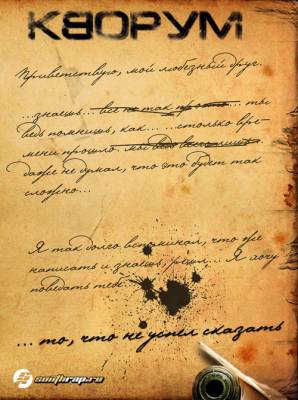 КВОРУМ
Приветствую, мой любезный друг.
...знаешь... все не так просто... ты
ведь помнишь, как... ...столько вре-
мени прошло.
даже не думал, что это будет так
сложно...
Я так долго вспоминал, что же
написать и знаешь, решил... Я хочу
поведать тебе
... то, что не успел сказать
southrap.ru